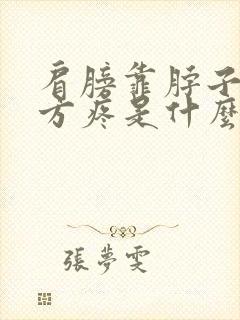 肩膀靠脖子
方疼是什麼
張夢雯